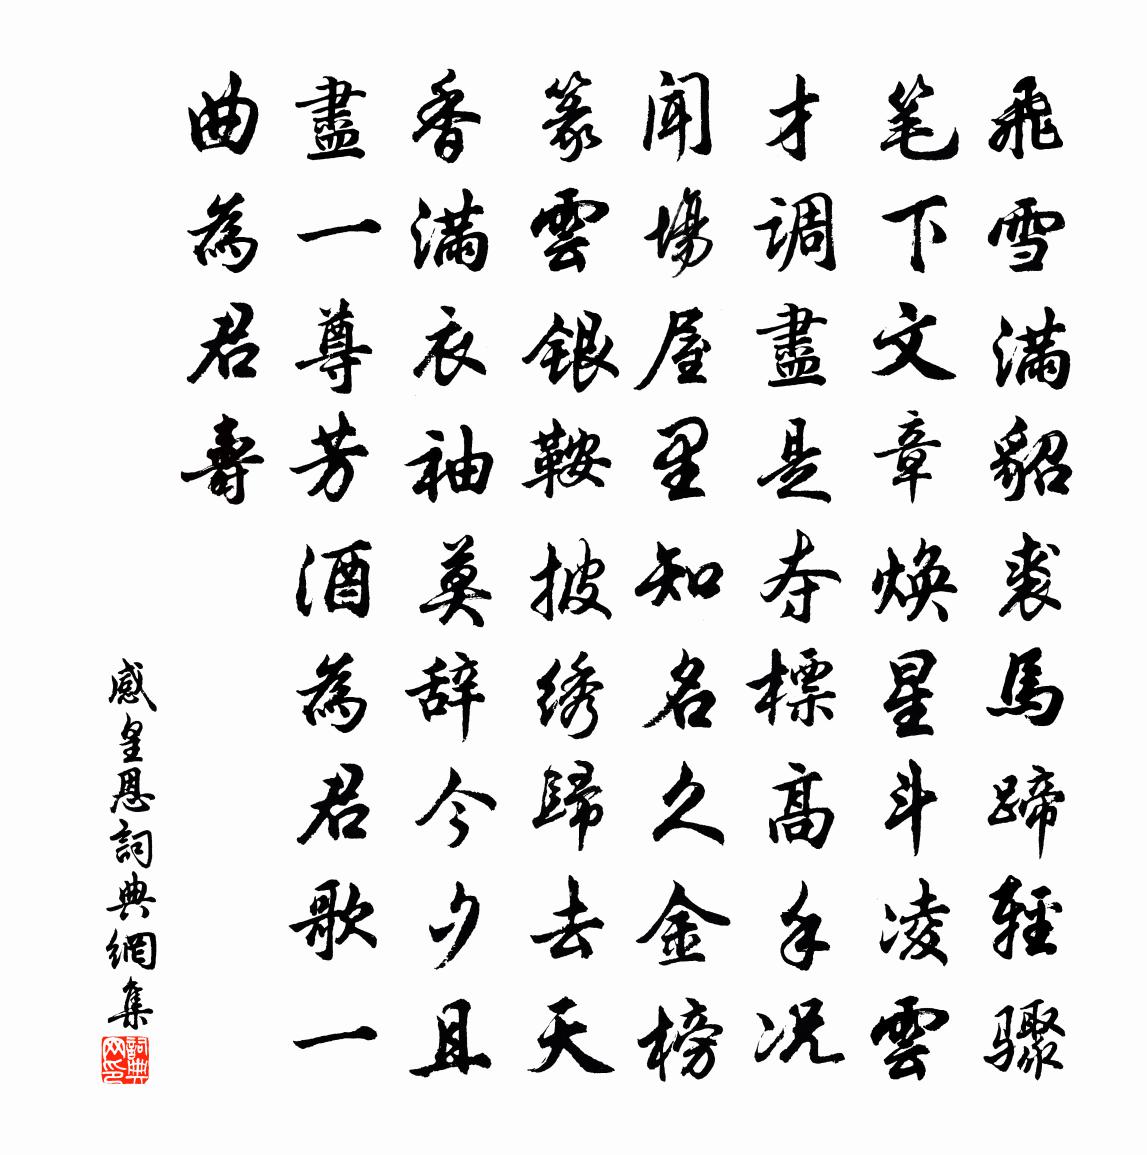 飛雪滿貂裘馬蹄輕驟
笔下文章焕星斗凌雲
才调盡是夺標高手况
聞場屋里知名久金榜
篆雲銀鞍披绣歸去天
香滿衣袖莫辞今夕且
盡一尊芳酒為君歌一
曲為君壽
感皇恩詞典網集
詞典网印